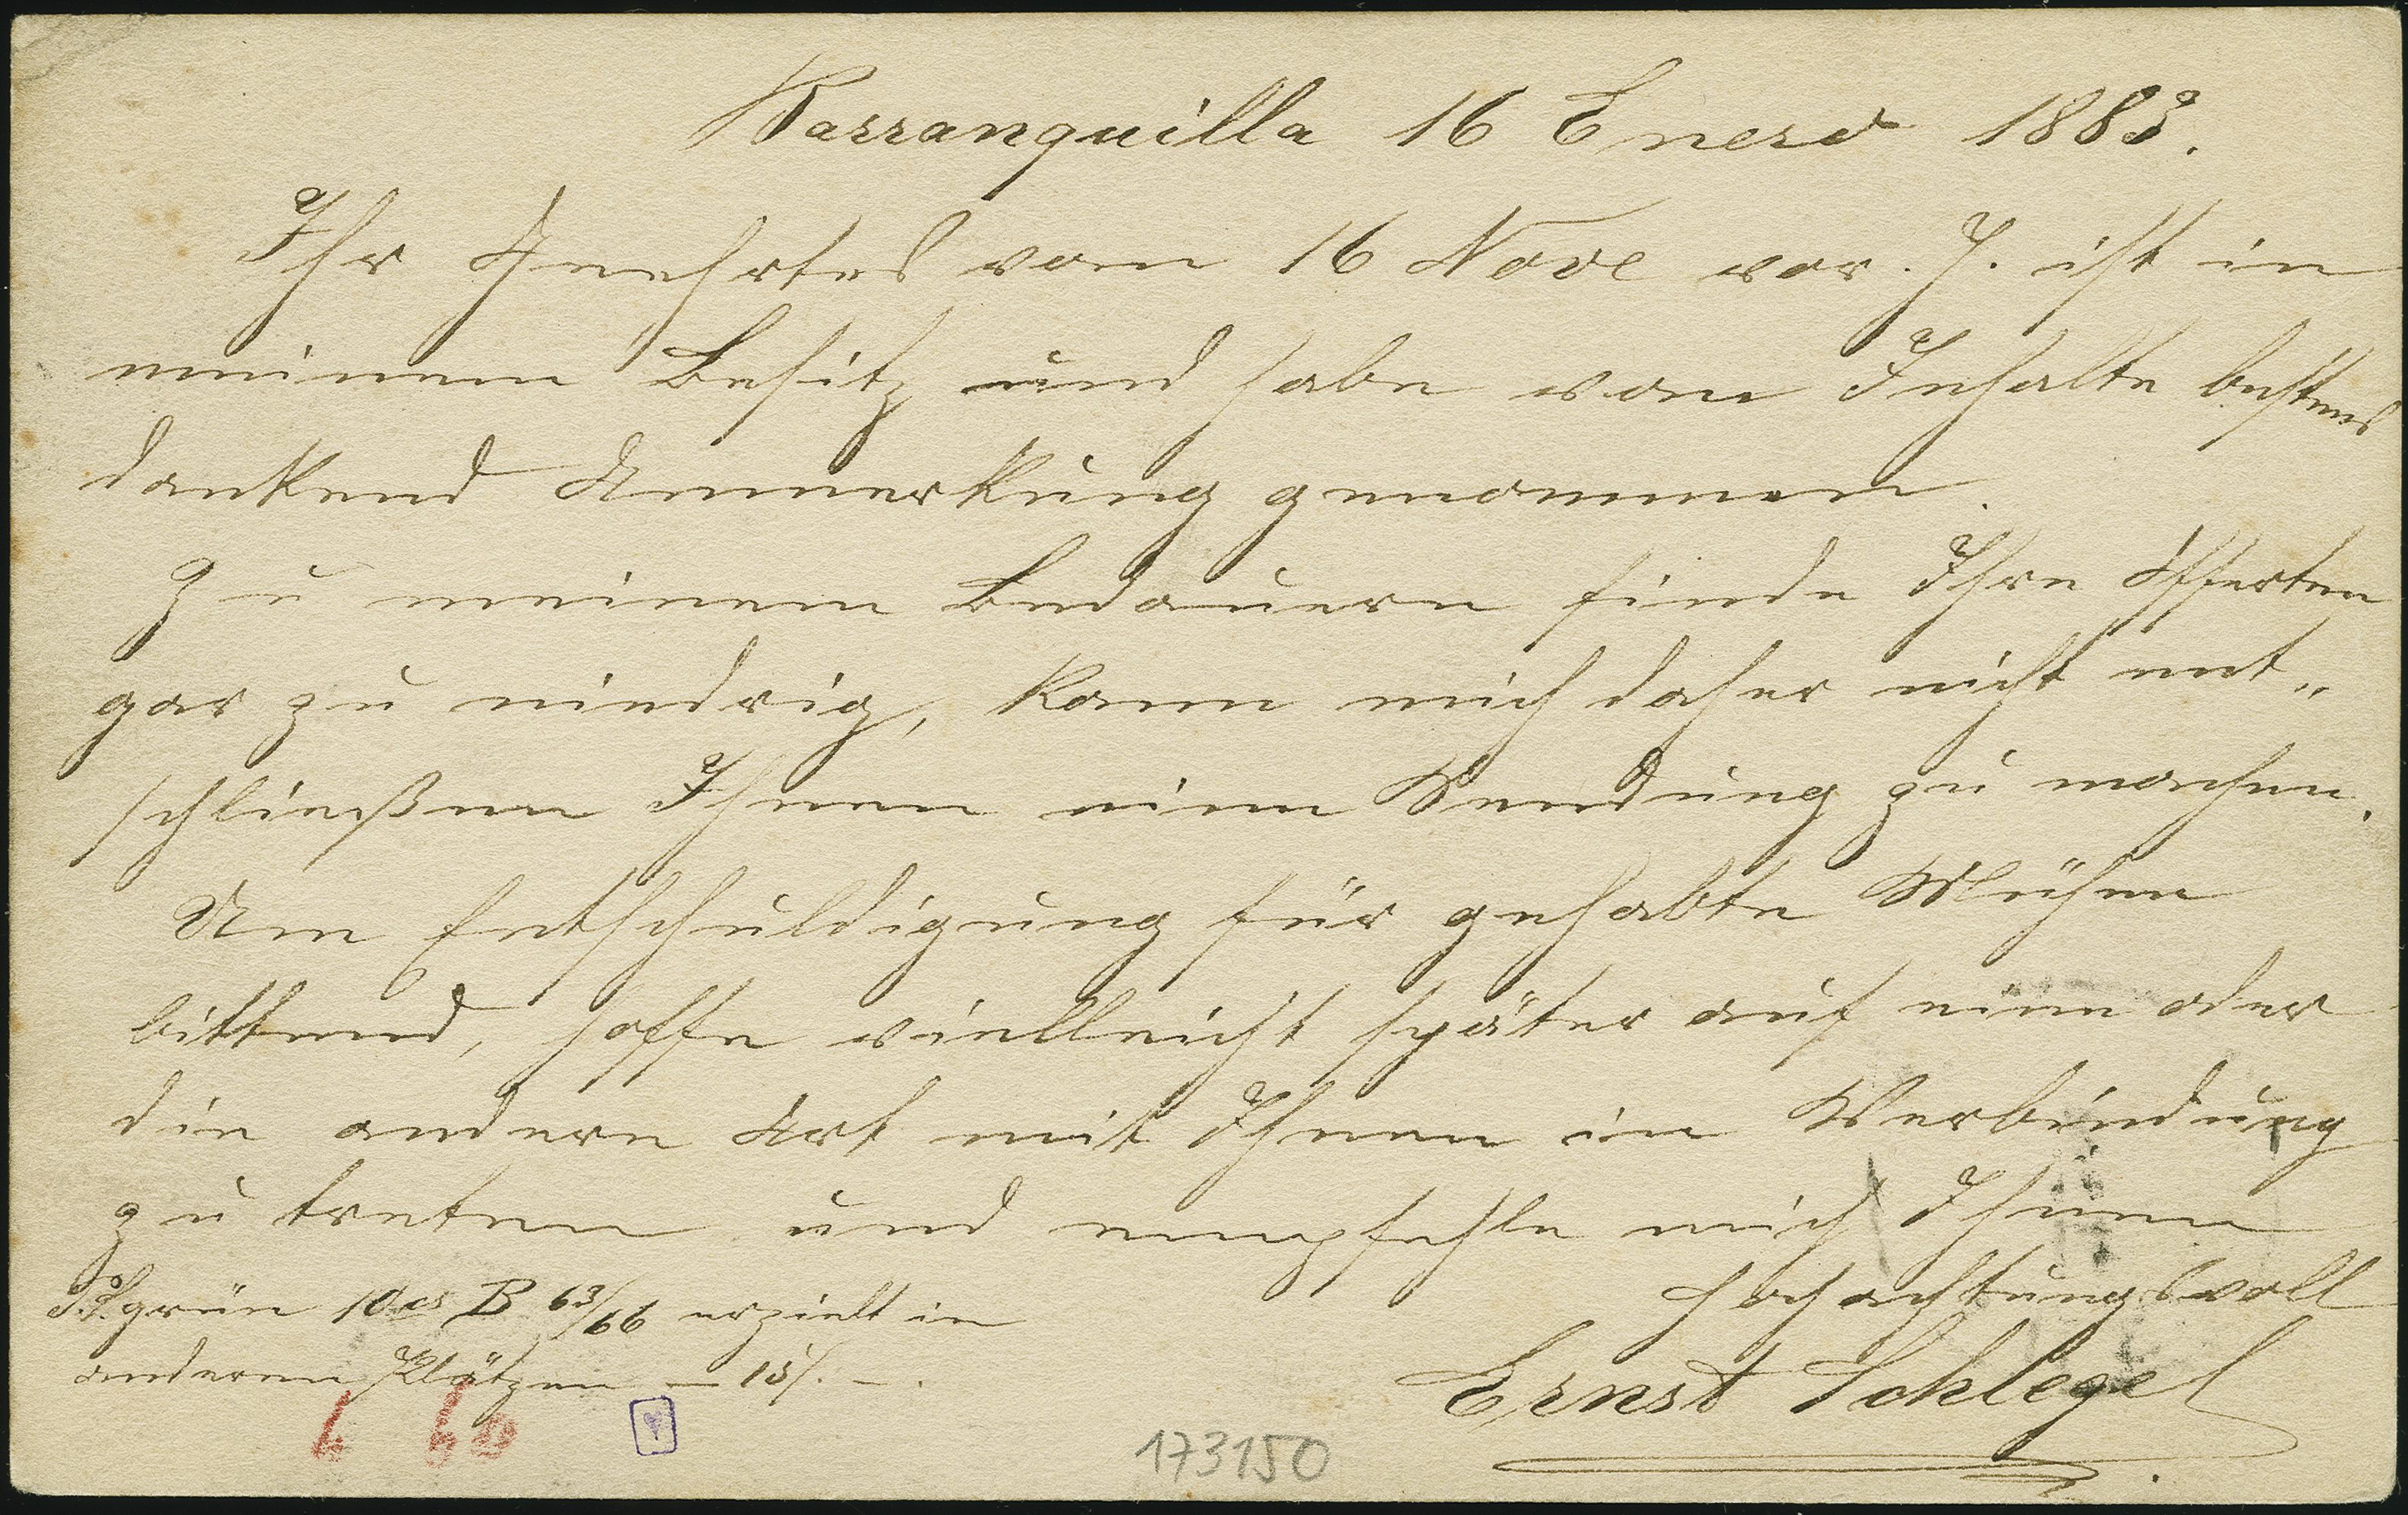 Barranquilla 16 Enero 1883.
Ihr Geehrtes vom 16 Nove vor. J. ist in
meinem Besitz und habe vom Inhalte bestens
dankend Anmerkung genommen.
Zu meinem Bedauern finde Ihre Offerten
gar zu niedrig, kann mich daher nicht ent„
schließen Ihnen eine Sendung zu machen.
Um Entschuldigung für gehabte Mühen
bittend, hoffe vielleicht später auf eine oder
die andere Art mit Ihnen in Verbindung
zu treten und empfehle mich Ihnen
Hochachtungsvoll
Ernst Schlegel
grün 10cs B 63/66 erzielt in
anderen Plätzen — 15/. —.
173150